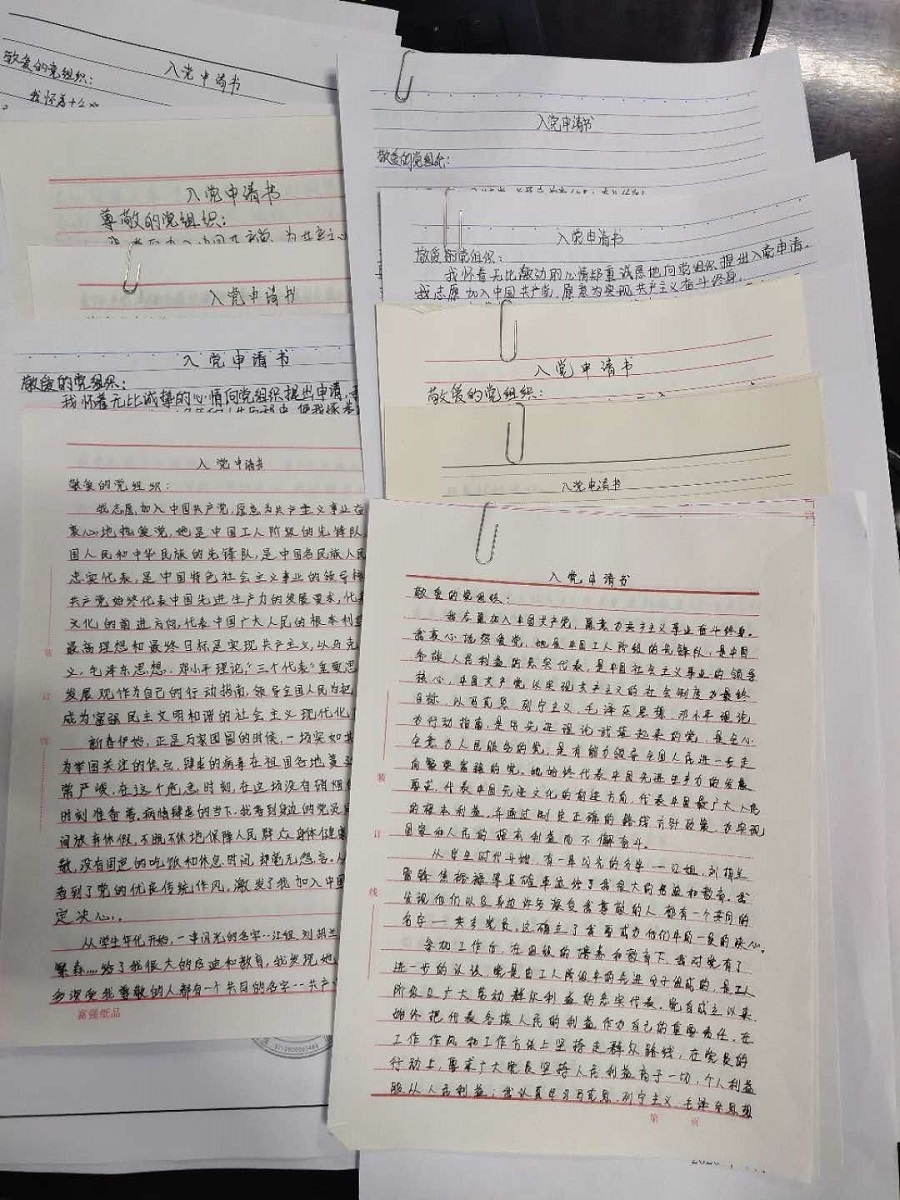 入党申请书
敬爱的党组织：
我怀着十分
入党申请书
尊敬的党组织：
入党申请书
入党申请书
敬爱的党组织：
我怀着无比诚挚的心情向党组织提出申请
入党申请书
敬爱的党组织：
我志愿加入中国共产党,愿意为共产主义事业在
衷心地热爱党,她是中国工人阶级的先锋队
国人民和中华民族的先锋队,是中国各民族人民
忠实代表,是中国特色社会主义事业的领导核
共产党始终代表中国先进生产力的发展要求,代表
文化的前进方向,代表中国广大人民的根本利益
最高理想和最终目标是实现共产主义,以马克
义,毛泽东思想、邓小平理论,“三个代表”重要思
发展观作为自己的行动指南,领导全国人民为把
成为富强民主文明和谐的社会主义现代化
新春伊始,正是万家团圆的时候,一场突如其
为举国关注的焦点,肆虐的病毒在祖国各地蔓延
常严峻,在这个危急时刻,在这场没有硝烟
时刻准备着,病情肆虐的当下,我看到身边的党员
间放弃休假,不眠不休地保障人民群众身体健康
敬,没有固定的吃饭和休息时间,却毫无怨言。从
看到了党的优良传统作风,激发了我加入中国
定决心。
从学生年代开始,一串闪光的名字--江姐,刘胡兰
繁森……给了我很大的启迪和教育,我发现他
多深受我尊敬的人都有一个共同的名字--共产
富强纸品
入党申请书
敬爱的党组织：
入党申请书
敬爱的党组织：
我怀着无比激动的心情郑重诚恳地向党组织提出入党申请。
我志愿加入中国共产党,愿意为实现共产主义奋斗终身
入党申请书
敬爱的党组织：
入党申请书
入党申请书
敬爱的党组织：
我志愿加入中国共产党,愿意为共产主义事业奋斗终身。
我衷心地热爱党,她是中国工人阶级的先锋队,是中国
各族人民利益的忠实代表,是中国社会主义事业的领导
核心,中国共产党以实现共产主义的社会制度为最终
目标,以马克思列宁主义、毛泽东思想、邓小平理论
为行动指南,是用先进理论武装起来的党,是全心
全意为人民服务的党,是有能力领导全国人民进一步走
向繁荣富强的党。她始终代表中国先进生产力的发展
要求,代表中国先进文化的前进方向,代表中国最广大人民
的根本利益,并通过制定正确的路线方针政策,为实现
国家和人民的根本利益而不懈奋斗。
从学生时代开始,有一串闪光的名字—江姐,刘胡兰
雷锋焦裕禄孔繁森给了我很大的启迪和教育。我
发现他们以及身边许多深受我尊敬的人都有一个共同的
名字——共产党员,这确立了我要成为他们中的一员的决心。
参加工作后,在组织的培养和教育下,我对党有了
进一步的认识。党是由工人阶级中的先进分子组成的,是工人
阶级及广大劳动群众利益的忠实代表。党自成立以来,
始终把代表各族人民的利益作为自己的重要责任。在
工作作风和工作方法上坚持走群众路线,在党员的
行动上,要求广大党员坚持人民利益高于一切,个人利益
服从人民利益;我认真学习马克思、列宁主义、毛泽东思想
第 页
装
订
线